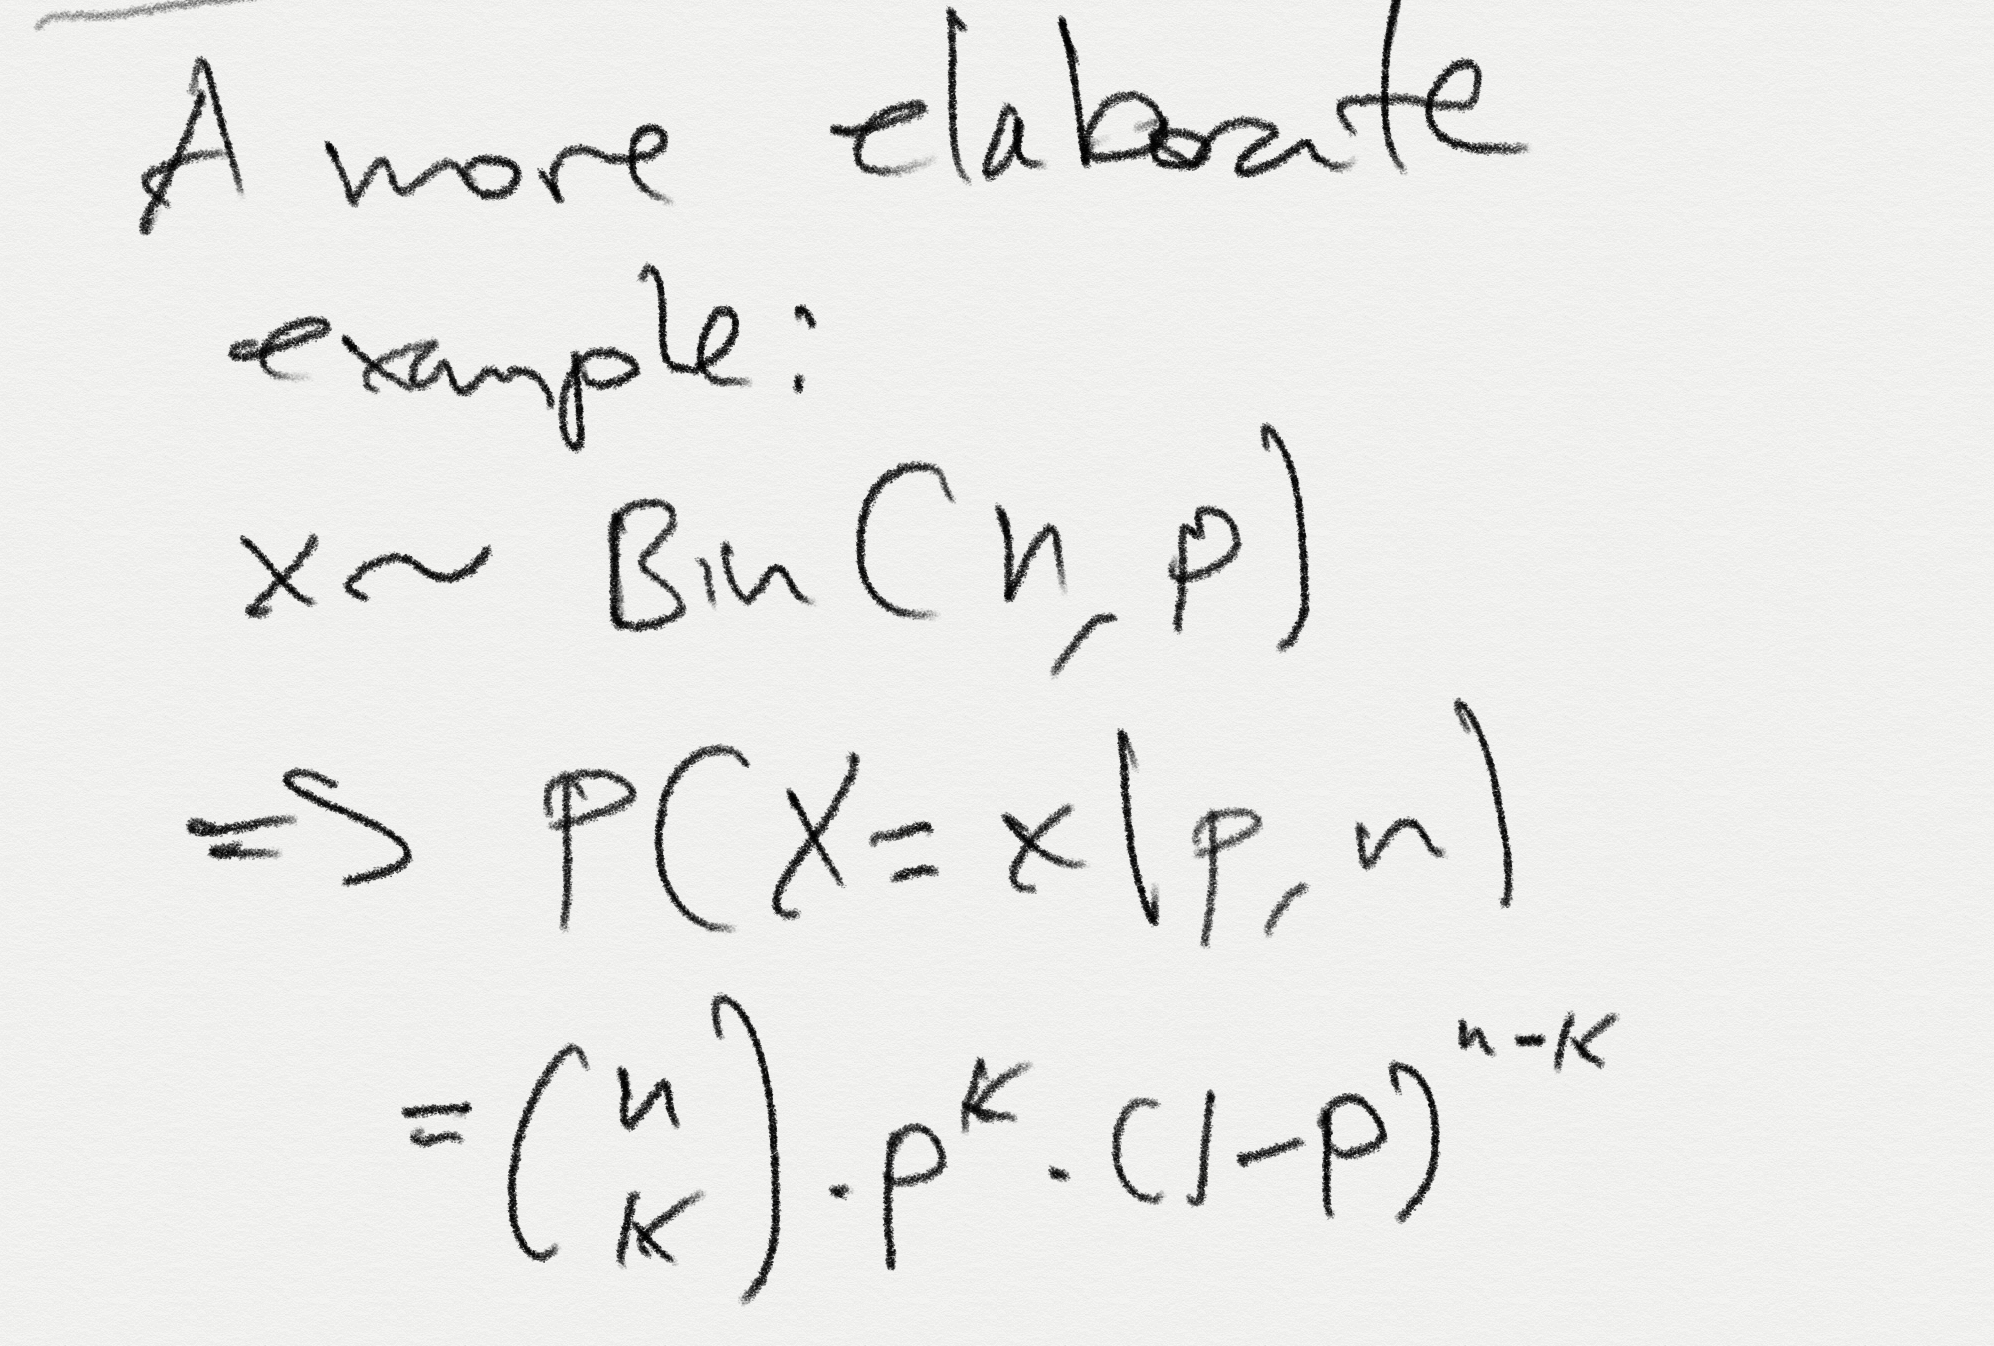 A more elaborate
example:
x ~ Bin(n, p)
=> P(X = x | p, n)
= (n K) · p^K · (1-p)^n-K